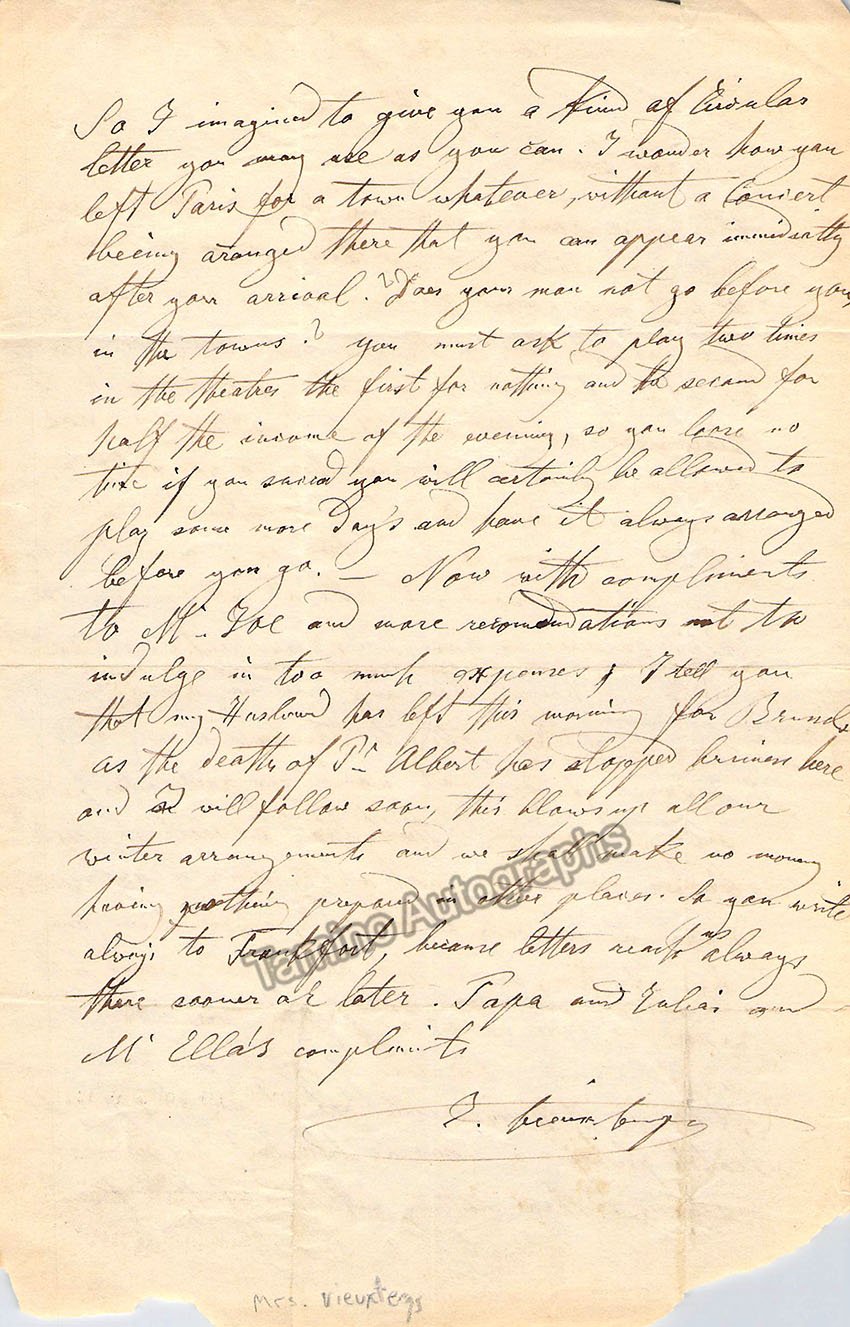 So I imagined to give you a kind of Circular
letter you may use as you can. I wonder how you
left Paris for a town whatever, without a Concert
beeing aranged there that you can appear immidiatly
after your arrival? Does your man not go before you,
in the towns? you must ask to play two times
in the theatres the first for nothing and the second for
half the income of the evening, so you loose no
time if you succed you will certainly be allowed to
play some more Day's and have it always arranged
before you go. — Now with compliments
to Mr. and more recomendations not to
indulge in too much expenses, I tell you
that my Husband has left this morning for
as the death of Pr Albert has stopped business here
and I will follow soon, this blows up all our
winter arrangements and we shall make no money
having nothing prepared in other places. So you write
always to Frankfort, because letters reach us always
there sooner or later. Papa and Julie's and
Mr Ella's compliments
J. Vieuxtemps
Mrs. Vieuxtemps
Tamino Autographs